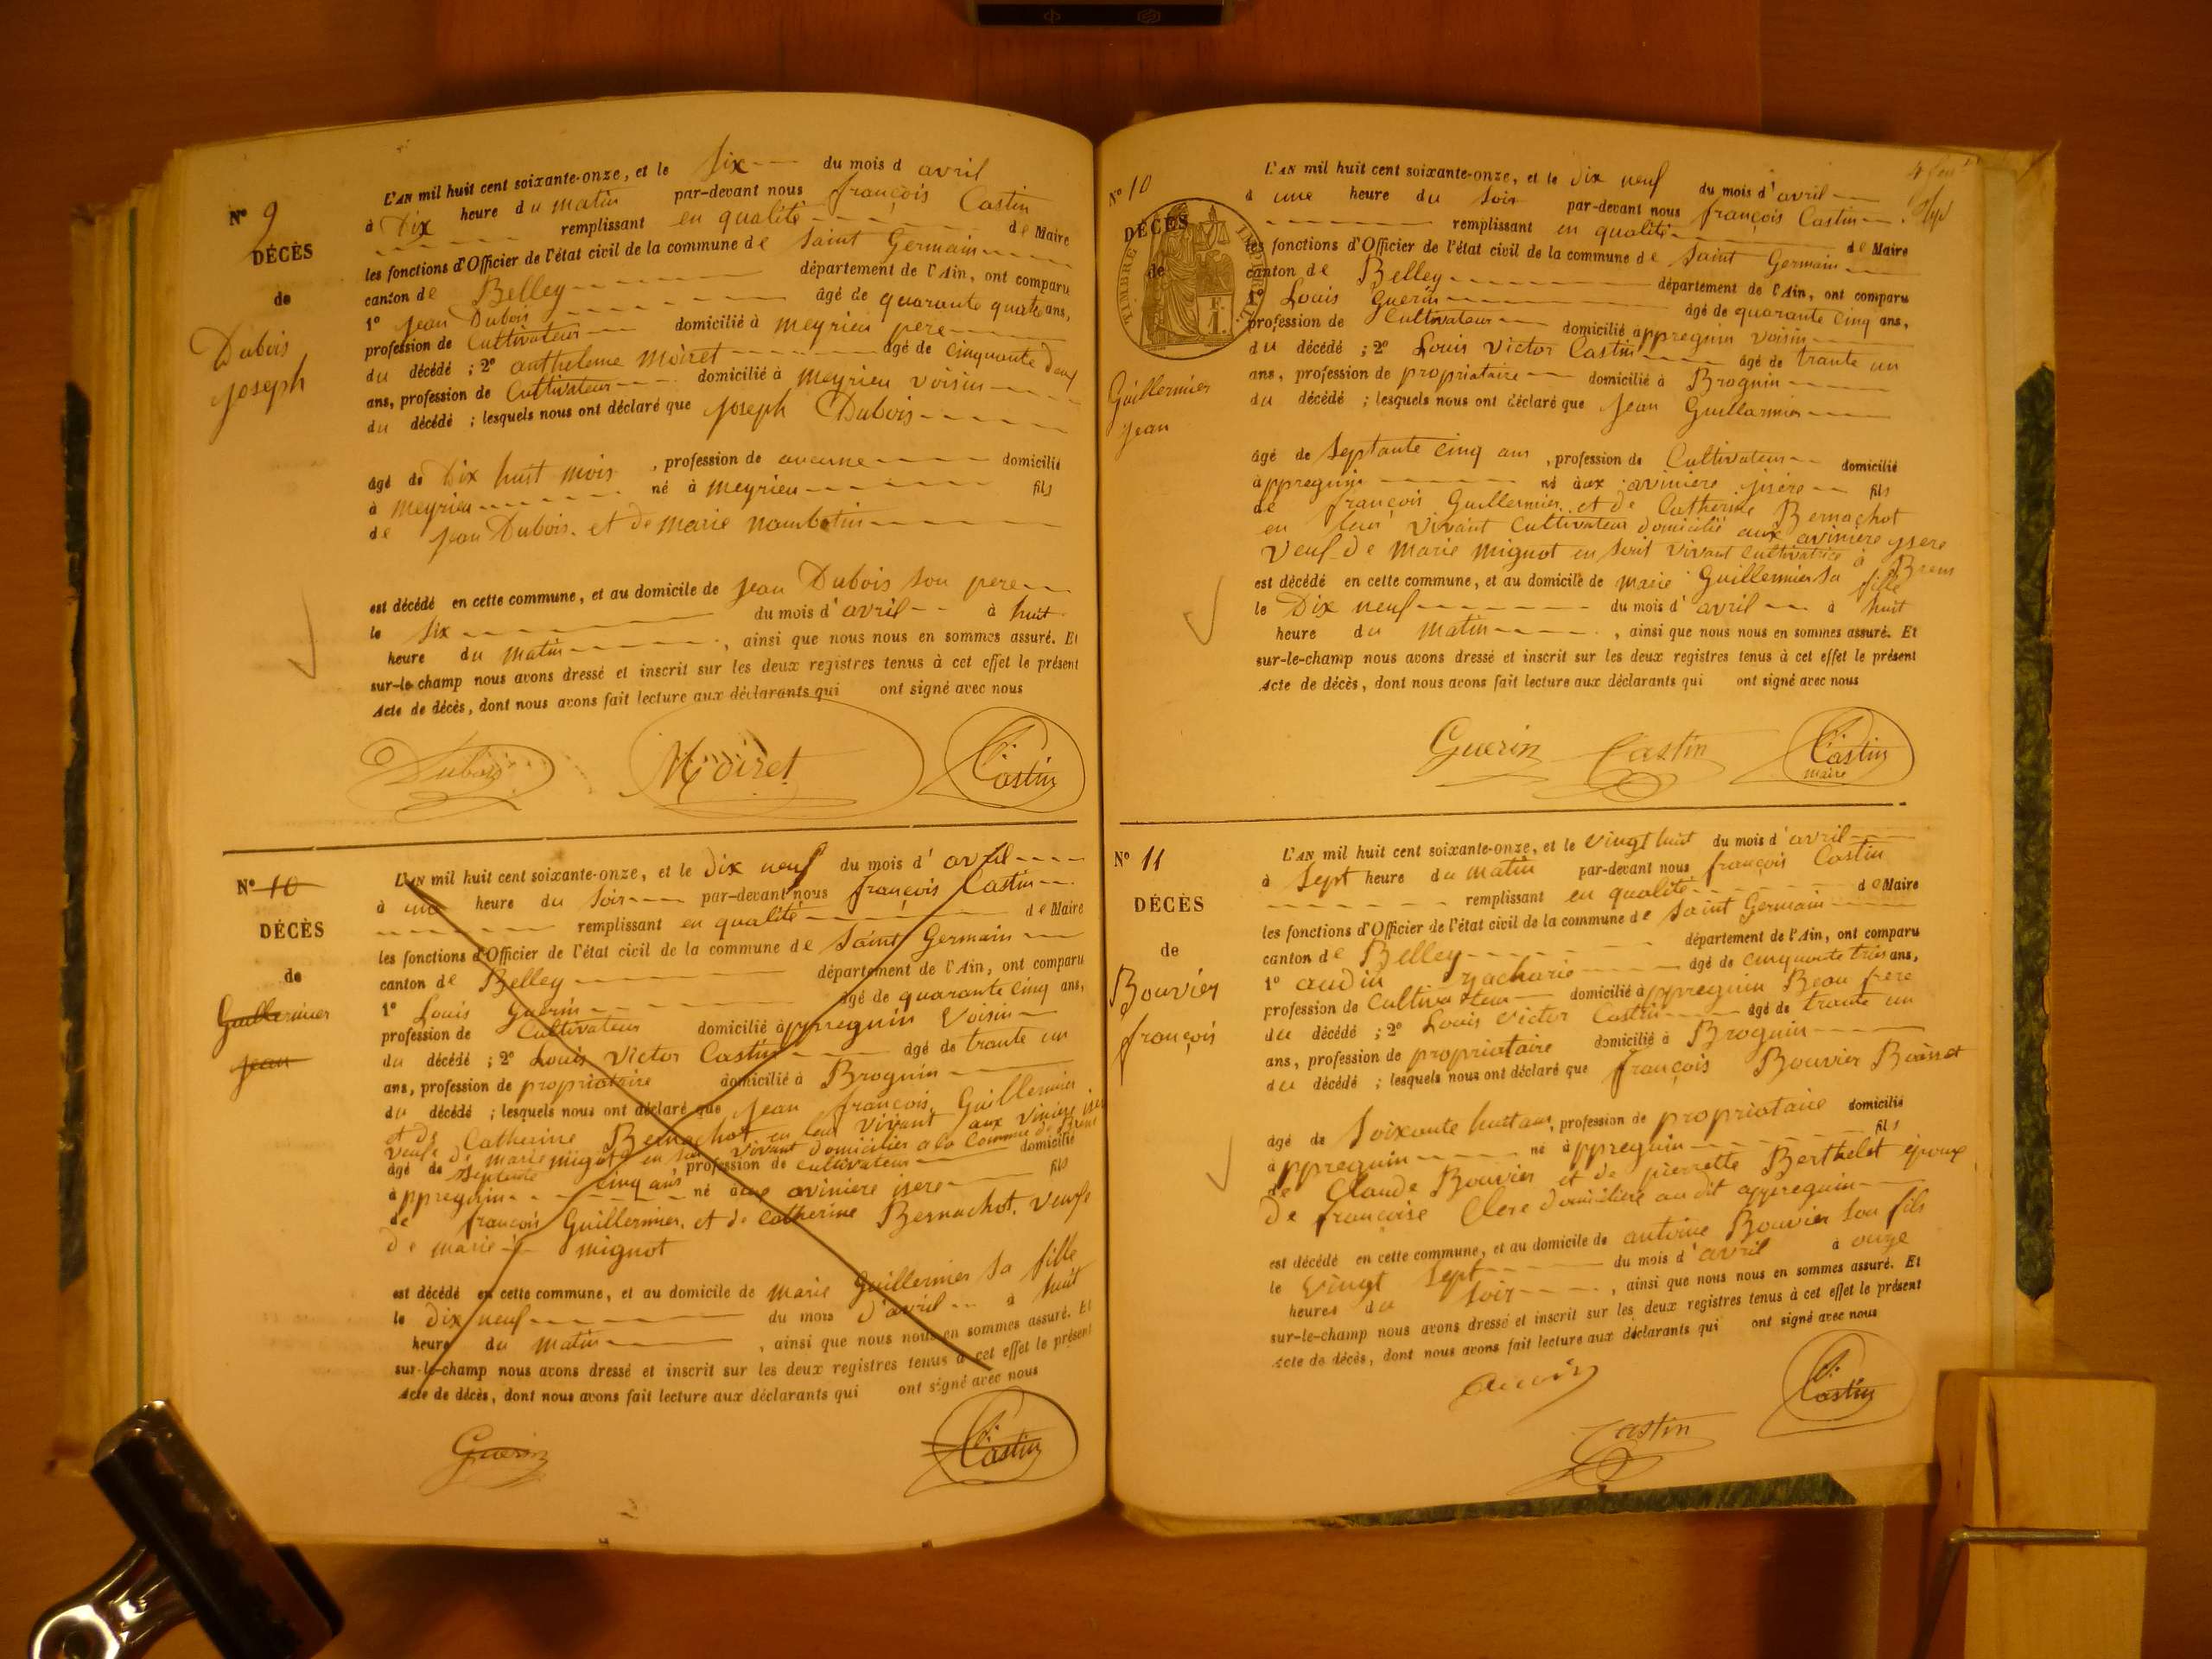 N° 9
DÉCÈS
de
Dubois
joseph
L'AN mil huit cent soixante-onze, et le six du mois d avril
à Dix heure du matin par-devant nous françois Castin
remplissant en qualité de Maire
les fonctions d'Officier de l'état civil de la commune de Saint Germain
canton de Belley département de l'Ain, ont comparu
1° jean Dubois âgé de quarante quatre ans,
profession de Cultivateur domicilié à meyrieu pere
du décédé ; 2° anthelme Moiret âgé de cinquante deux
ans, profession de Cultivateur domicilié à meyrieu voisin
du décédé ; lesquels nous ont déclaré que joseph Dubois
âgé de Dix huit mois , profession de aucune domicilié
à meyrieu né à meyrieu fils
de jean Dubois. et de marie nambotin
est décédé en cette commune, et au domicile de jean Dubois son pere
le six du mois d'avril à huit
heure du matin , ainsi que nous nous en sommes assuré. Et
sur-le-champ nous avons dressé et inscrit sur les deux registres tenus à cet effet le présent
Acte de décès, dont nous avons fait lecture aux déclarants qui ont signé avec nous
Dubois Moiret Castin
N° 10
DÉCÈS
de
Guillermier
jean
L'AN mil huit cent soixante-onze, et le dix neuf du mois d' avril
à une heure du soir par-devant nous françois Castin
remplissant en qualité de Maire
les fonctions d'Officier de l'état civil de la commune de Saint Germain
canton de Belley département de l'Ain, ont comparu
1° Louis Guerin âgé de quarante cinq ans,
profession de Cultivateur domicilié à ppreguin voisin
du décédé ; 2° Louis Victor Castin âgé de trante un
ans, profession de propriataire domicilié à Brognin
du décédé ; lesquels nous ont déclaré que jean françois Guillermier
et de Catherine Bernachot en leur vivant aux viniere
veufe de marie mignot en son vivant domicilier a la Commune de Brens
âgé de septente cinq ans profession de cultivateur domicilié
à ppreguin né aux aviniere isere fils
de françois Guillermier. et de Catherine Bernachot. veufe
de marie mignot
est décédé en cette commune, et au domicile de marie Guillermier sa fille
le dix neuf du mois d'avril à huit
heure du matin , ainsi que nous nous en sommes assuré. Et
sur-le-champ nous avons dressé et inscrit sur les deux registres tenus à cet effet le présent
Acte de décès, dont nous avons fait lecture aux déclarants qui ont signé avec nous
Guerin Castin
N° 10
DÉCÈS
de
TIMBRE IMPÉRIAL
Guillermier
jean
L'AN mil huit cent soixante-onze, et le dix neuf du mois d'avril
à une heure du soir par-devant nous françois Castin
remplissant en qualité de Maire
les fonctions d'Officier de l'état civil de la commune de Saint Germain
canton de Belley département de l'Ain, ont comparu
1° Louis Guerin âgé de quarante cinq ans,
profession de Cultivateur domicilié à ppreguin voisin
du décédé ; 2° Louis Victor Castin âgé de trante un
ans, profession de propriataire domicilié à Brognin
du décédé ; lesquels nous ont déclaré que jean Guillarmier
âgé de septante cinq ans , profession de Cultivateur domicilié
à ppreguin né aux aviniere isere fils
de françois Guillermier. et de Catherine Bernachot
en leur vivant cultivateur domicilié aux aviniere ysere
veuf de marie mignot en son vivant cultivatrice à Brens
est décédé en cette commune, et au domicile de marie Guillermier sa fille
le Dix neuf du mois d'avril à huit
heure du matin , ainsi que nous nous en sommes assuré. Et
sur-le-champ nous avons dressé et inscrit sur les deux registres tenus à cet effet le présent
Acte de décès, dont nous avons fait lecture aux déclarants qui ont signé avec nous
Guerin Castin Castin
maire
N° 11
DÉCÈS
de
Bouvier
françois
L'AN mil huit cent soixante-onze, et le vingt huit du mois d'avril
à sept heure du matin par-devant nous françois Castin
remplissant en qualité de Maire
les fonctions d'Officier de l'état civil de la commune de Saint Germain
canton de Belley département de l'Ain, ont comparu
1° audin zacharie âgé de cinquante trois ans,
profession de cultivateur domicilié à ppreguin Beau frere
du décédé ; 2° Louis Victor Castin âgé de trante un
ans, profession de propriataire domicilié à Brognin
du décédé ; lesquels nous ont déclaré que françois Bouvier
âgé de soixante huit ans, profession de propriataire domicilié
à ppreguin né à ppreguin fils
de Claude Bouvier et de pierrette Berthelet époux
de françoise Clere domiciliée au dit appreguin
est décédé en cette commune, et au domicile de antoine Bouvier son fils
le vingt sept du mois d'avril à onze
heures du soir , ainsi que nous nous en sommes assuré. Et
sur-le-champ nous avons dressé et inscrit sur les deux registres tenus à cet effet le présent
Acte de décès, dont nous avons fait lecture aux déclarants qui ont signé avec nous
Castin
Castin